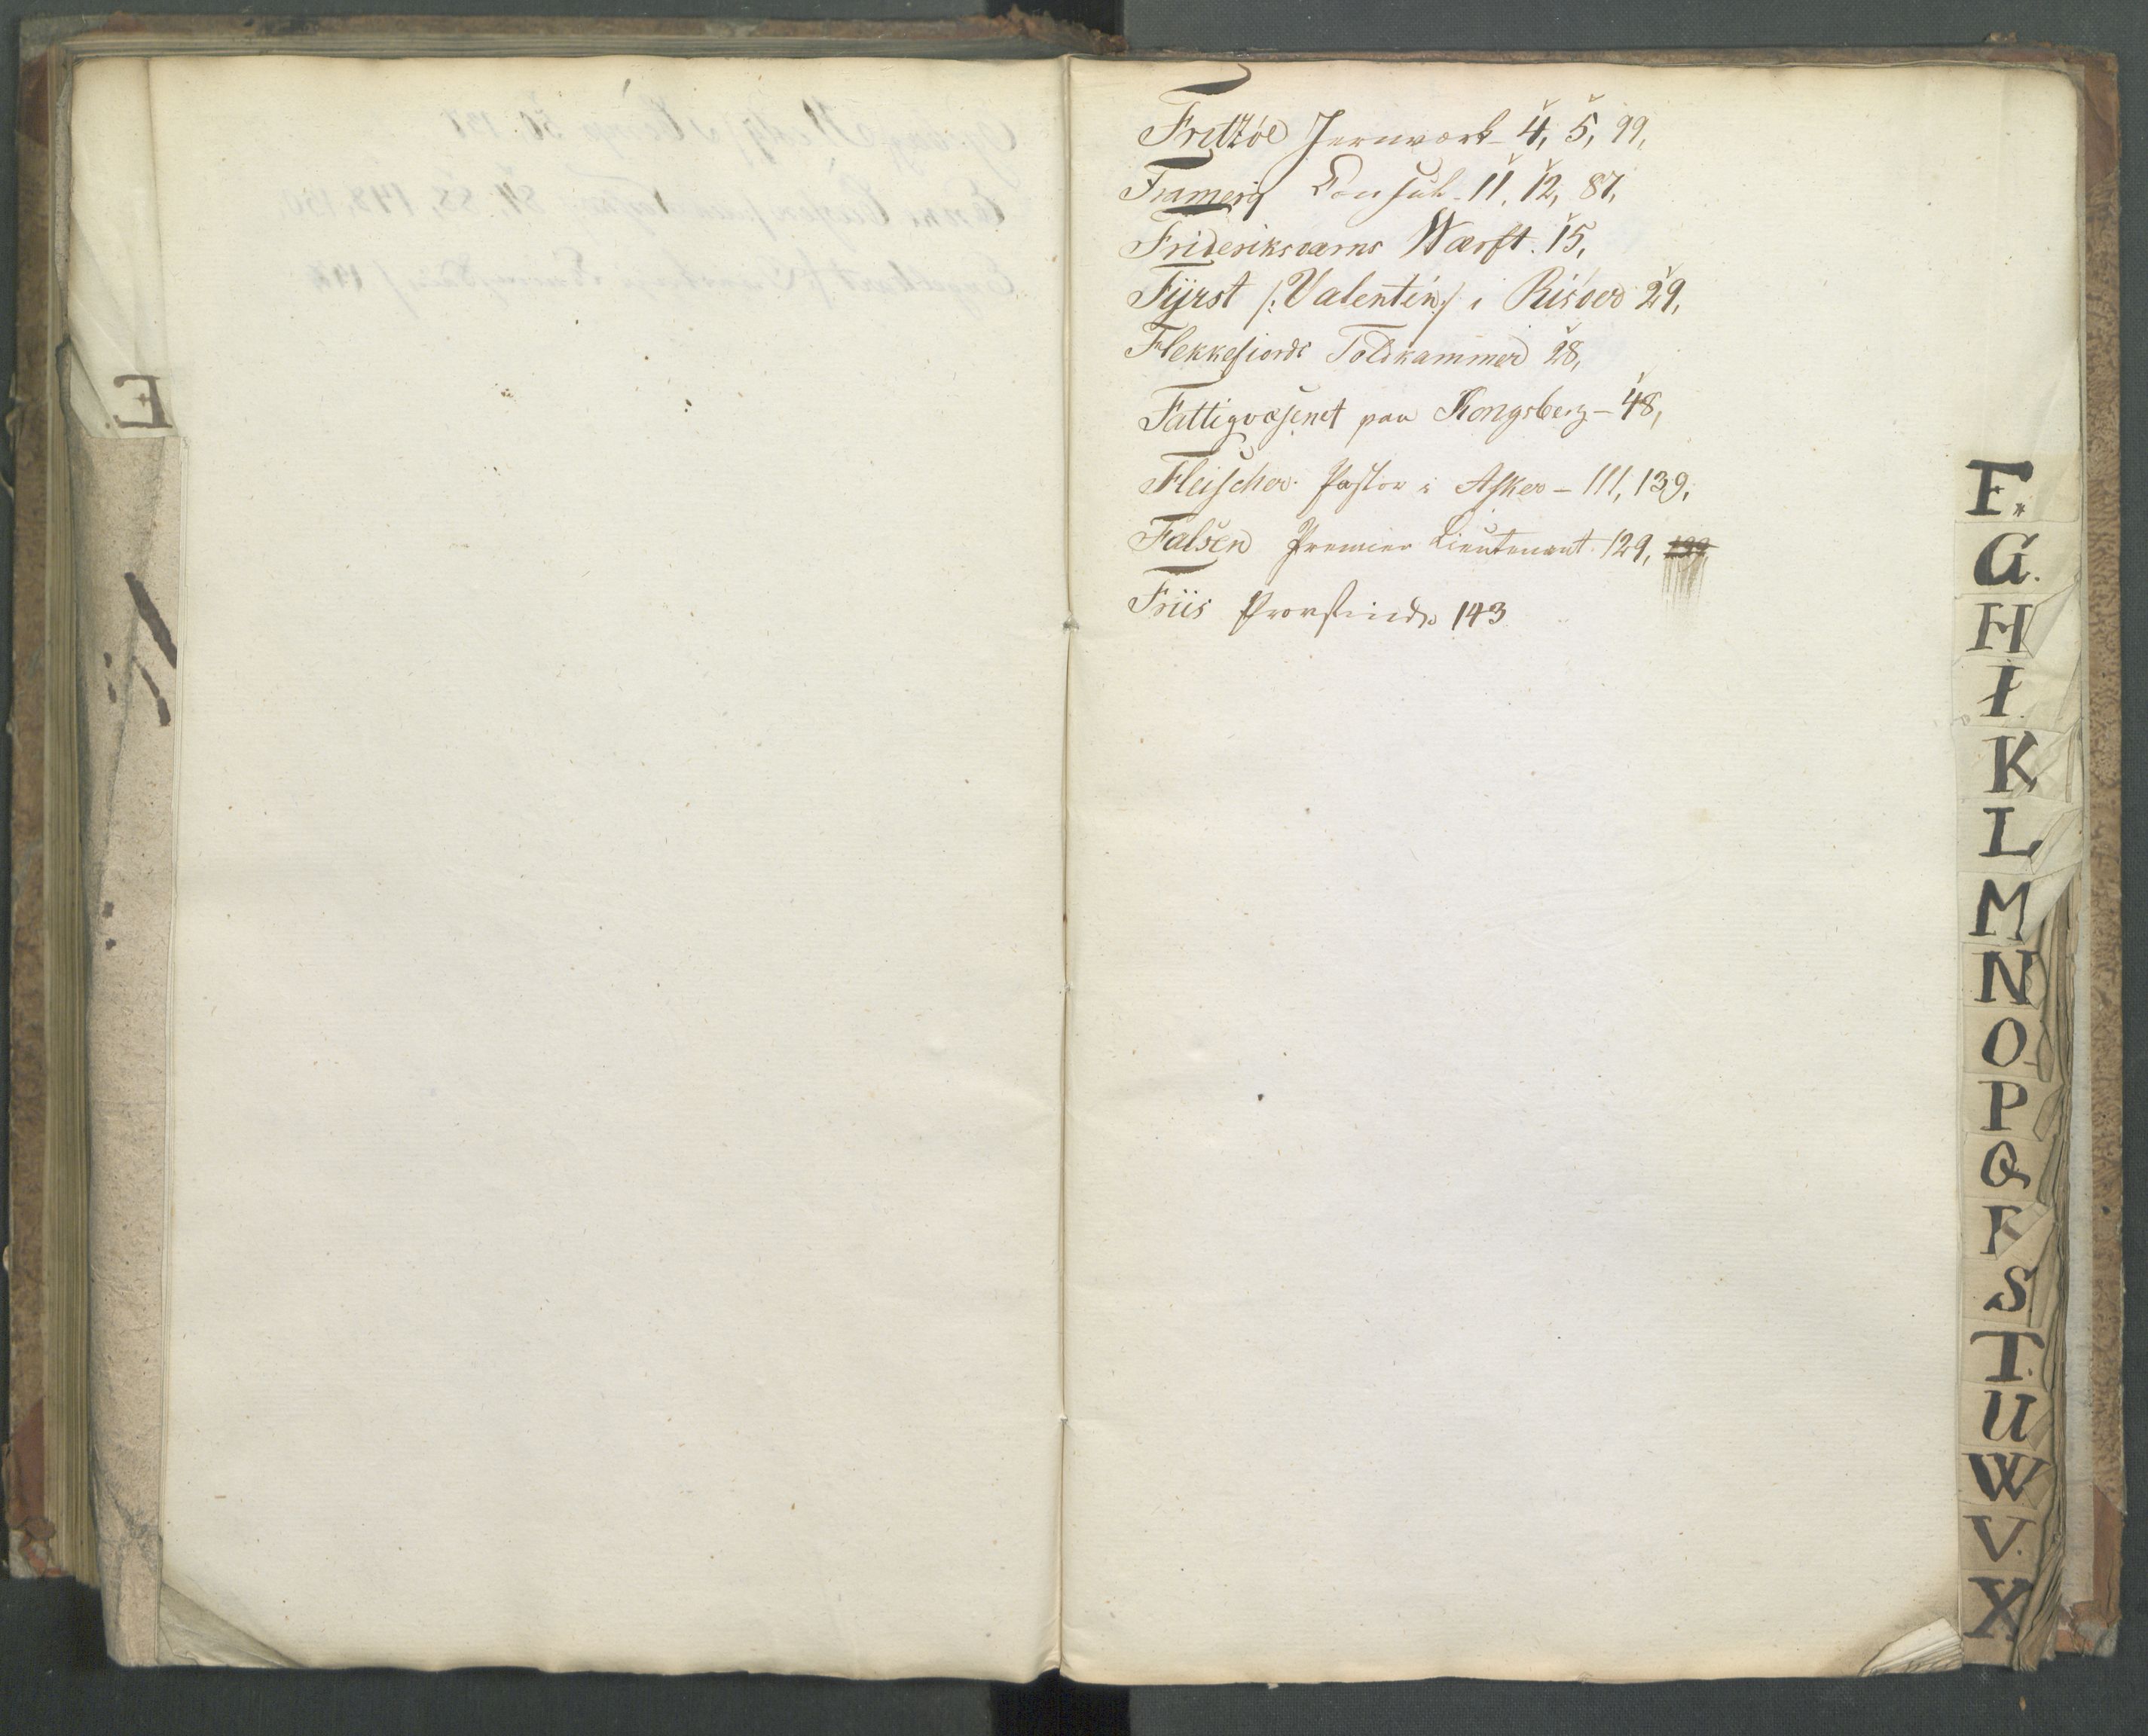 Fritzöe Jernværk - 4, 5, 99,
Framery Consul - 11, 12, 87,
Frideriksværns Værft. 15,
Fürst /: Valentin :/ i Risöer 29,
Flekkefiords Toldkammer 28,
Fattigvæsenet paa Kongsberg - 48,
Fleischer Pastor i Asker - 111, 139,
Falsen Premier Lieutenant 129, 139,
Friis Provstinde 143
E.
F.
G.
H
I.
K
L
M
N
O
P
Q
S
T.
U
W
V.
X